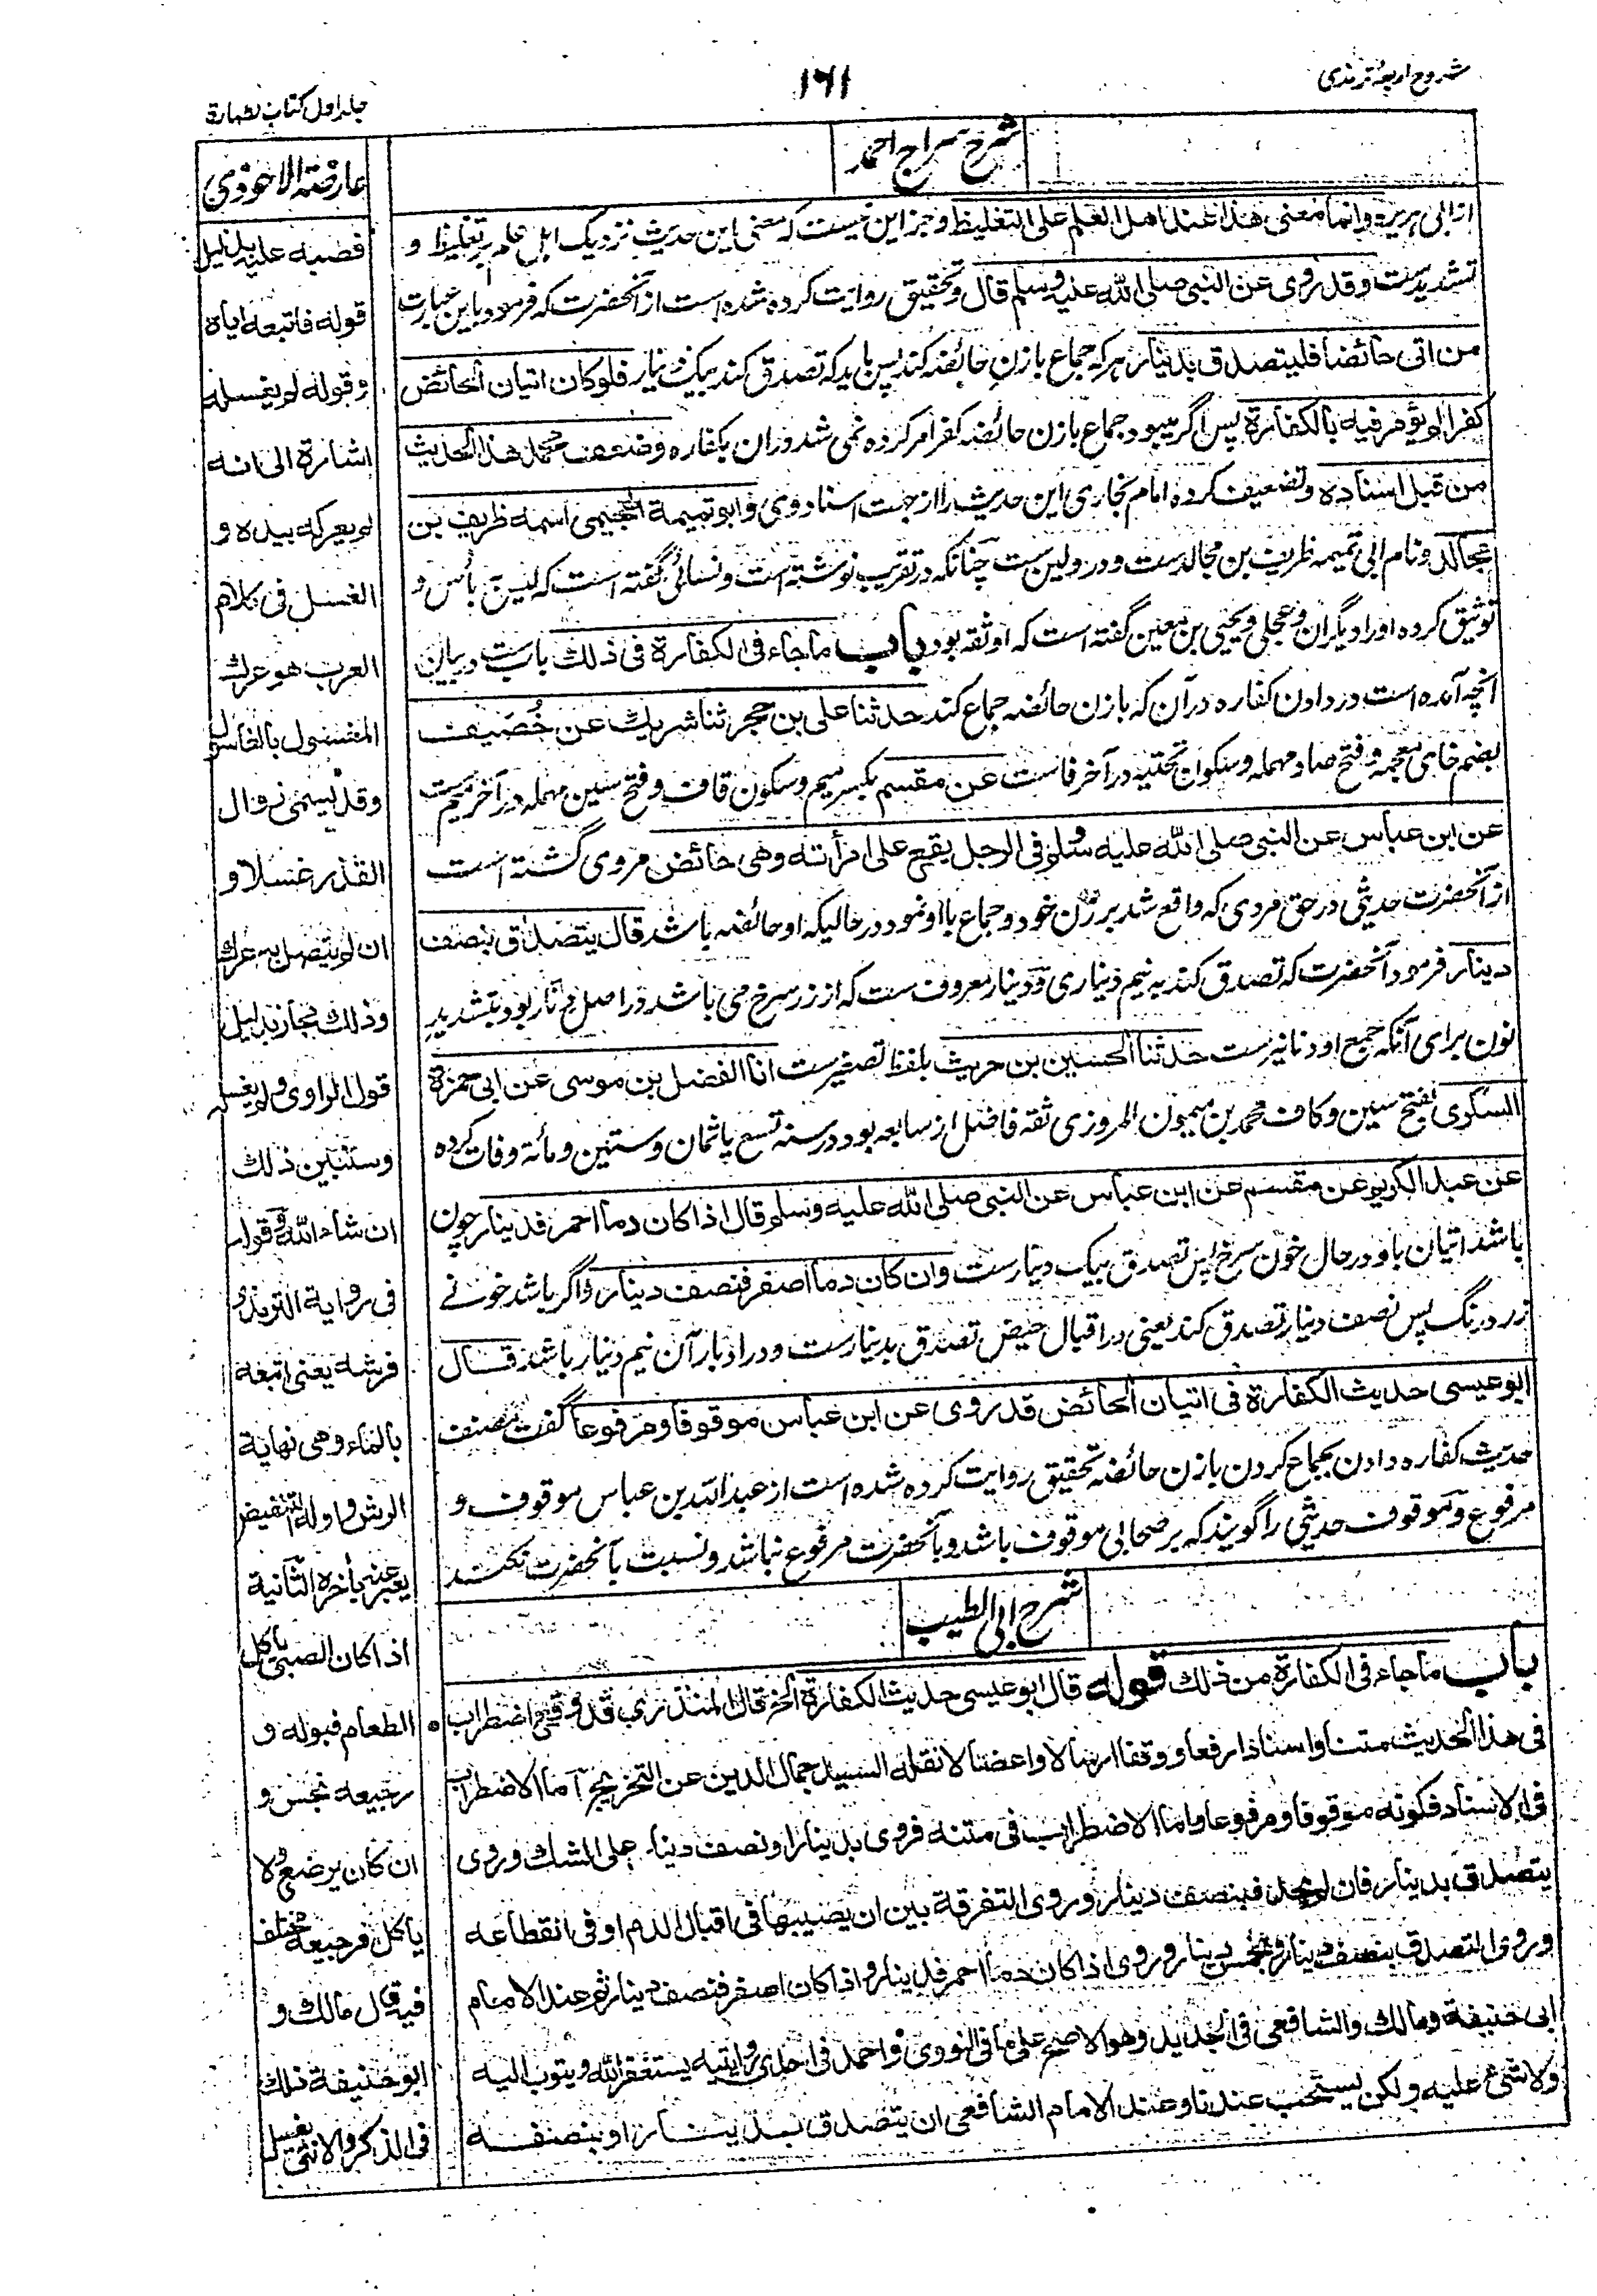 شروح اربعۂ ترمذی
۱۶۱
جلد اول کتاب لطہارۃ
شرح سراج احمد
از ابی ہریرہ وانما معنی هذا عند اهل العلم علی التغلیظ و جز این نیست کہ معنی این حدیث نزدیک اہل علم بر تغلیظ و
تشدیدست وقد روی عن النبی صلی الله علیه وسلم قال و تحقیق روایت کردہ شدہ است از آنحضرت کہ فرمود باین عبارت
من اتی حائضا فلیتصدق بدینار ہر کہ جماع با زن حائضہ کند پس باید کہ تصدق کند بیک دینار فلوکان اتیان الحائض
کفرا لم یؤمر فیه بالکفارة پس اگر میبود جماع با زن حائضہ کفر امر کردہ نمی شد دران بکفارہ وضعف محمد هذا الحدیث
من قبل اسناده و تضعیف کردہ امام بخاری این حدیث را از جہت اسناد وی وابو تمیمة الهجیمی اسمه طریف بن
مجالد و نام ابی تمیمہ طریف بن مجالدست و درو لین ست چنانکہ در تقریب نوشتہ است و نسائی گفتہ است کہ لیس بہ بأس و
توثیق کردہ او را دیگران و عجلی و یحیی بن معین گفتہ است کہ او ثقہ بود باب ماجاء فی الکفارة فی ذلک باب ست در بیان
آنچہ آمدہ است در دادن کفارہ در آن کہ با زن حائضہ جماع کند حدثنا علی بن حجر ثنا شریک عن خُصَیف
بضم خای معجمہ و فتح صاد مہملہ و سکون تحتیہ در آخر فاست عن مقسم بکسر میم و سکون قاف و فتح سین مہملہ در آخر میم ست
عن ابن عباس عن النبی صلی الله علیه وسلم فی الرجل یقع علی امرأته وهی حائض مروی گشتہ است
از آنحضرت حدیثی در حق مردی کہ واقع شد بر زن خود و جماع با او نمود در حالیکہ او حائضہ باشد قال یتصدق بنصف
دینار فرمود آنحضرت کہ تصدق کند بہ نیم دیناری و دینار معروف ست کہ از زر سرخ می باشد در اصل دنّار بود بتشدید
نون برای آنکہ جمع او دنانیرست حدثنا الحسین بن حریث بلفظ تصغیرست انا الفضل بن موسی عن ابی حمزة
السکری بفتح سین و کاف محمد بن میمون المروزی ثقہ فاضل از سابعہ بود در سنہ تسع یا ثمان و ستین و مائة وفات کردہ
عن عبد الکریم عن مقسم عن ابن عباس عن النبی صلی الله علیه وسلم قال اذا کان دما احمر فدینار چون
باشد اتیان با و در حال خون سرخ پس تصدق بیک دینارست وان کان دما اصفر فنصف دینار و اگر باشد خونے
زرد رنگ پس نصف دینار تصدق کند یعنی در اقبال حیض تصدق بدینارست و در ادبار آن نیم دینار باشد قال
ابو عیسی حدیث الکفارة فی اتیان الحائض قد روی عن ابن عباس موقوفا ومرفوعا گفت مصنف
حدیث کفارہ دادن بجماع کردن با زن حائضہ تحقیق روایت کردہ شدہ است از عبد اللہ بن عباس موقوف و
مرفوع و موقوف حدیثی را گویند کہ بر صحابی موقوف باشد و بآنحضرت مرفوع نباشد و نسبت بآنحضرت نکنند
شرح ابی الطیب
باب ماجاء فی الکفارة من ذلک قوله قال ابو عیسی حدیث الکفارة الخ قال المنذری قد وقع اضطراب
فی هذا الحدیث متنا واسنادا رفعا ووقفا ارسالا واعضالا نقله السید جمال الدین عن التخریج اما الاضطراب
فی الاسناد فکونه موقوفا ومرفوعا واما الاضطراب فی متنه فروی بدینار او نصف دینار علی الشک وروی
یتصدق بدینار فان لم یجد فبنصف دینار وروی التفرقة بین ان یصیبها فی اقبال الدم او فی انقطاعه
وروی التصدق بنصف دینار وبخمس دینار وروی اذا کان دما احمر فدینار واذا کان اصفر فنصف دینار ثم عند الامام
ابی حنیفة ومالک والشافعی فی الجدید وهو الاصح علی ما فی النووی واحمد فی احدی روایتیه یستغفر الله ویتوب الیه
ولا شیء علیه ولکن یستحب عندنا وعند الامام الشافعی ان یتصدق بدینار او بنصفه
عارضۃ الاحوذی
فصبه علیه بدلیل
قوله فاتبعه ایاه
وقوله لم یغسله
اشارة الی انه
لم یعرکه بیده و
الغسل فی کلام
العرب هو عرک
المغسول بالغاسول
وقد یسمی زوال
القذر غسلا و
ان لم یتصل به عرک
وذلک مجاز بدلیل
قول الراوی ولم یغسله
وسنبین ذلک
ان شاء الله وقوله
فی روایة الترمذی
فرشه یعنی اتبعه
بالماء وهی نهایة
الرش واوله التنفیض
یعبر عنه باخره الثانیة
اذا کان الصبی یأکل
الطعام فبوله و
رجیعه نجس و
ان کان یرضع ولا
یاکل فرجیعه مختلف
فیه قال مالک و
ابو حنیفة ذلک
فی الذکر والانثی یغسل